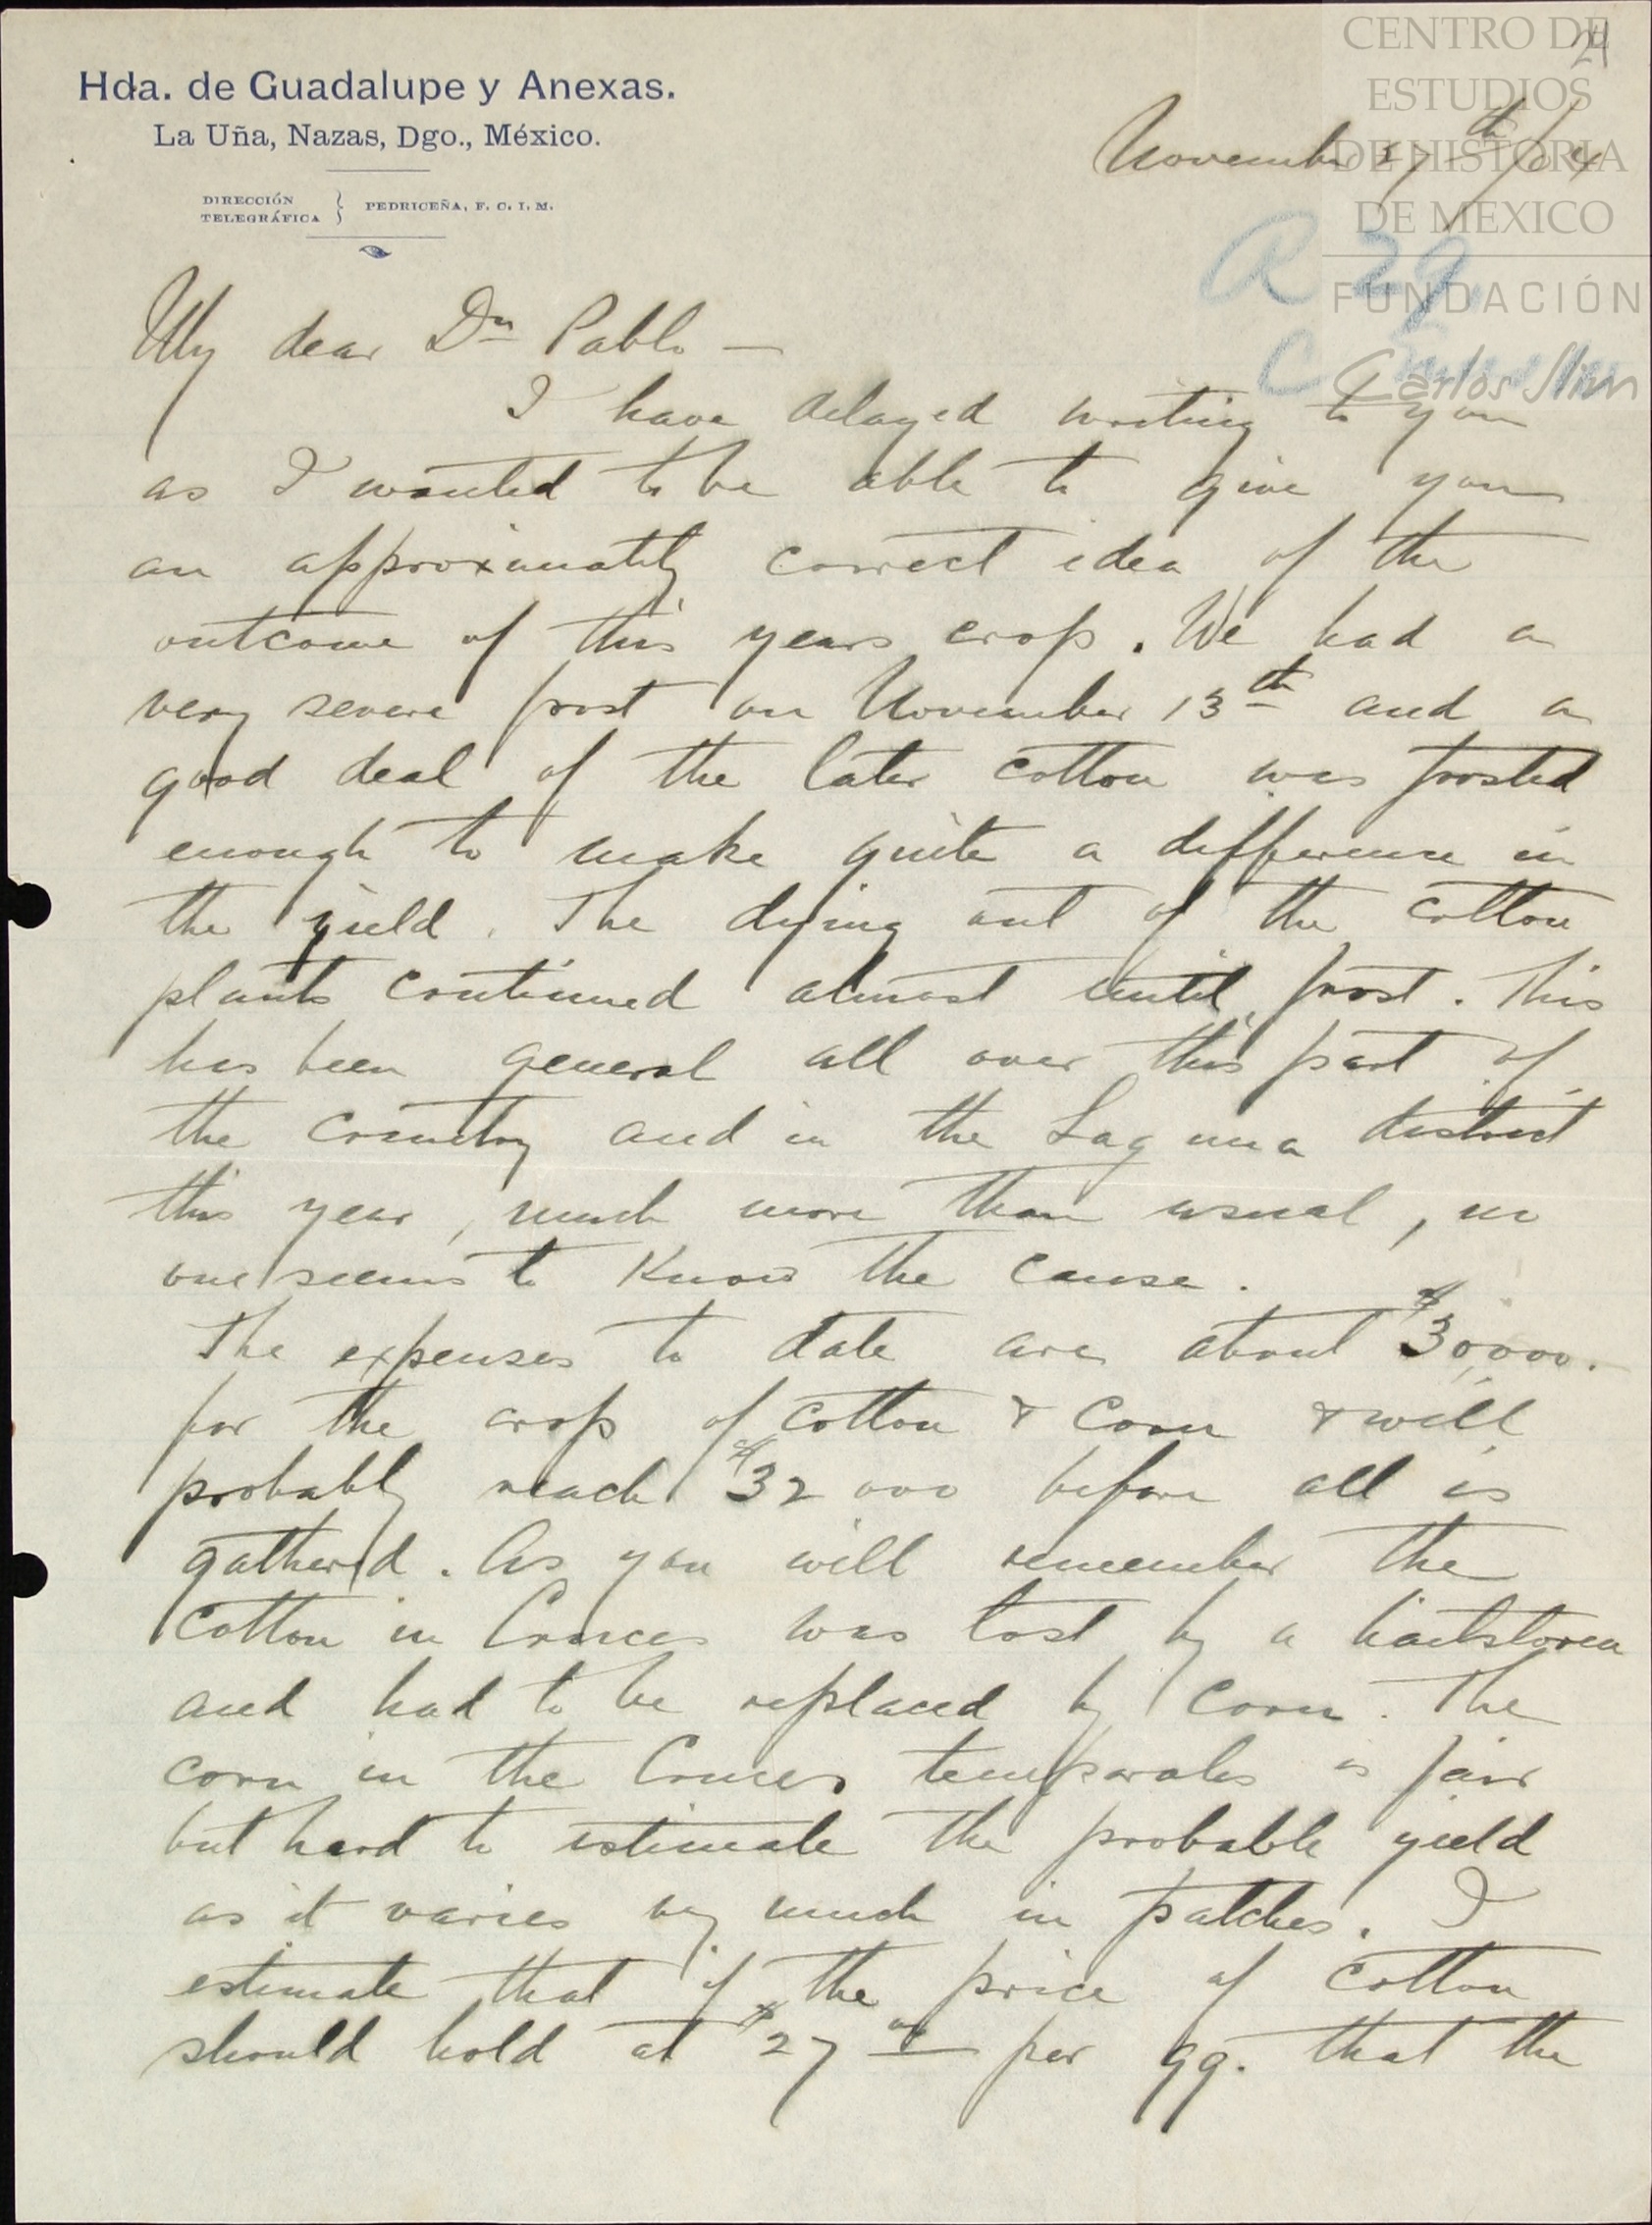 CENTRO DE
ESTUDIOS
DE HISTORIA
DE MEXICO
FUNDACIÓN
Carlos Slim
21
Hda. de Guadalupe y Anexas.
La Uña, Nazas, Dgo., México.
DIRECCIÓN
TELEGRÁFICA } PEDRICEÑA, F. C. I. M.
November 27th/04
R 29
C
My dear Dn Pablo —
I have delayed writing to you
as I wanted to be able to give you
an approximately correct idea of the
outcome of this years crop. We had a
very severe frost on November 13th and a
good deal of the later cotton was frosted
enough to make quite a difference in
the yield. The dying out of the cotton
plants continued almost until frost. This
has been general all over this part of
the country and in the Laguna district
this year, much more than usual, no
one seems to know the cause.
The expenses to date are about $30,000.
for the crop of cotton & corn & will
probably reach $32 000 before all is
gathered. As you will remember the
cotton in Cruces was lost by a hailstorm
and had to be replaced by corn. The
corn in the Cruces temporales is fair
but hard to estimate the probable yield
as it varies very much in patches. I
estimate that if the price of cotton
should hold at $27 00 per qq. that the